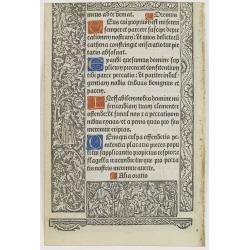 mens abte dimat. Oremus
Deus cui propriũ est misereri
semper et parcere suscipe depre
cationem nostram: vt quos delictorũ
cathena constringit miseratio tue pie
tatis absoluat.
Exaudi quesumus domine sup
plicum preces et confitentium
tibi parce peccatis: vt pariter indul
gentiam nobis tribuas benignus et
pacem.
Ineffabilem nobis domine mi
sericordiam tuam clementer
ostende: vt simul nos et a peccatis om
nibus exuas et a penis quas pro his
meremur eripias.
Deus qui culpa offenderis pe
nitentia placaris preces popu
li tui supplicantis propitius respice
flagella iracundie tue que pro pecca
tis nostris meremur auerte.
Alia oratio